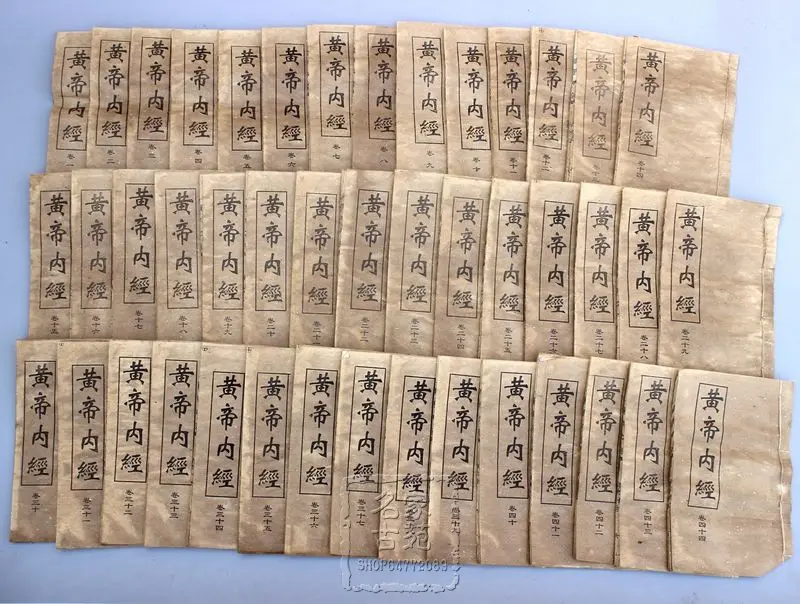 黄帝内經 卷一
黄帝内經 卷二
黄帝内經 卷三
黄帝内經 卷四
黄帝内經 卷五
黄帝内經 卷六
黄帝内經 卷七
黄帝内經 卷八
黄帝内經 卷九
黄帝内經 卷十
黄帝内經 卷十一
黄帝内經 卷十二
黄帝内經
黄帝内經 卷十四
黄帝内經 卷十五
黄帝内經 卷十六
黄帝内經 卷十七
黄帝内經 卷十八
黄帝内經 卷十九
黄帝内經 卷二十
黄帝内經 卷二十一
黄帝内經 卷二十二
黄帝内經 卷二十三
黄帝内經 卷二十四
黄帝内經 卷二十五
黄帝内經 卷二十六
黄帝内經 卷二十七
黄帝内經 卷二十八
黄帝内經 卷二十九
黄帝内經 卷三十
黄帝内經 卷三十一
黄帝内經 卷三十二
黄帝内經 卷三十三
黄帝内經 卷三十四
黄帝内經 卷三十五
黄帝内經 卷三十六
黄帝内經 卷三十七
黄帝内經
黄帝内經 卷三十九
黄帝内經 卷四十
黄帝内經 卷四十一
黄帝内經 卷四十二
黄帝内經 卷四十三
黄帝内經 卷四十四
名家
古苑
SHOP64772089